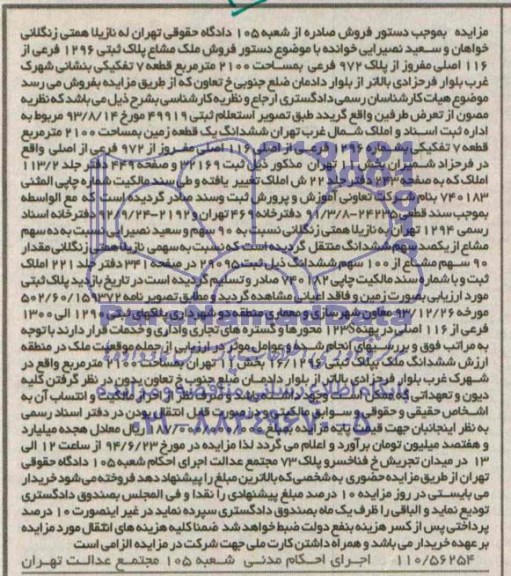 مزایده بموجب دستور فروش صادره از شعبه ۱۰۵ دادگاه حقوقی تهران له نازیلا همتی زنگلانی
خواهان و سعید نصیرایی خوانده با موضوع دستور فروش ملک مشاع پلاک ثبتی ۱۲۹۶ فرعی از
۱۱۶ اصلی مفروز از پلاک ۹۷۲ فرعی بمساحت ۲۱۰۰ مترمربع قطعه ۷ تفکیکی بنشانی شهرک
غرب بلوار فرحزادی بالاتر از بلوار دادمان ضلع جنوبی خ تعاون که از طریق مزایده بفروش می رسد
موضوع هیات کارشناسان رسمی دادگستری ارجاع و نظریه کارشناسی بشرح ذیل می باشد که نظریه
مصون از تعرض طرفین واقع گردید طبق تصویر استعلام ثبتی ۴۹۹۱۹ مورخ ۹۳/۸/۱۴ مربوط به
اداره ثبت اسناد و املاک شمال غرب تهران ششدانگ یک قطعه زمین بمساحت ۲۱۰۰ مترمربع
قطعه ۷ تفکیکی بشماره ۱۲۹۶ فرعی از اصلی ۱۱۶ اصلی مفروز از ۹۷۲ فرعی از اصلی واقع
در فرحزاد شمیران بخش ۱۱ تهران مذکور ذیل ثبت ۲۲۱۶۹ و صفحه ۴۴۹ دفتر جلد ۱۱۳/۲
املاک که به صفحه ۲۴۳ دفتر جلد ۲۲ ش املاک تغییر یافته و طی سند مالکیت شماره چاپی المثنی
۷۴۰۱۸۳ بنام شرکت تعاونی آموزش و پرورش ثبت وسند صادر گردیده است که مع الواسطه
بموجب سند قطعی ۲۴۲۲۵-۹۰/۳/۸ دفترخانه ۴۶۹ تهران و ۲۱۹۲-۹۲/۹/۲۴ دفترخانه اسناد
رسمی ۱۲۹۴ تهران به نازیلا همتی زنگلانی نسبت به ۹۰ سهم و سعید نصیرایی نسبت به ده سهم
مشاع از یکصد سهم ششدانگ منتقل گردیده است که نسبت به سهمی نازیلا همتی زنگلانی مقدار
۹۰ سهم مشاع از ۱۰۰ سهم ششدانگ ذیل ثبت ۲۹۰۹۵ در صفحه ۳۴۱ دفتر جلد ۲۲۱ املاک
ثبت و با شماره سند مالکیت چاپی ۷۴۰۱۸۲ صادر و تسلیم گردیده است در تاریخ بازدید پلاک ثبتی
مورد ارزیابی بصورت زمین و فاقد اعیانی مشاهده گردید و مطابق تصویر نامه ۵۰۲/۶۰/۱۵۹۳۷۲
مورخه ۹۰/۱۲/۲۶ معاون شهرسازی و معماری منطقه دو شهرداری پلاکهای ثبتی ۱۲۹۰ الی ۱۳۰۰
فرعی از ۱۱۶ اصلی در پهنه S۱۲۳ محورها و گستره های تجاری و اداری و خدمات قرار دارند با توجه
به مراتب فوق و بررسیهای انجام شده و عوامل موثر در ارزیابی از جمله موقعیت ملک در منطقه
ارزش ششدانگ ملک بپلاک ثبتی ۱۶/۱۲۹۶ بخش ۱۱ تهران بمساحت ۲۱۰۰ مترمربع واقع در
شهرک غرب بلوار فرحزادی بالاتر از بلوار دادمان ضلع جنوب خ تعاون بدون در نظر گرفتن کلیه
دیون و تعهداتی که ممکن است وجود داشته باشد و صرفنظر از نوع مالکیت و انتساب آن به
اشخاص حقیقی و حقوقی و سوابق مالکیت و در صورت قابل انتقال بودن در دفتر اسناد رسمی
به نظر اینجانبان جهت قیمت پایه مزایده بمبلغ ریال معادل هجده میلیارد
و هفتصد میلیون تومان برآورد و اعلام می گردد لذا مزایده در مورخ ۹۴/۶/۲۳ از ساعت ۱۲ الی
۱۳ در میدان تجریش خ فناخسرو پلاک ۷۳ مجتمع عدالت اجرای احکام شعبه ۱۰۵ دادگاه حقوقی
تهران از طریق مزایده حضوری به شخصی که بالاترین مبلغ را پیشنهاد دهد فروخته می شود خریدار
می بایستی در روز مزایده ۱۰ درصد مبلغ پیشنهادی را نقدا و فی المجلس بصندوق دادگستری
تودیع نماید و الباقی را ظرف یک ماه بصندوق دادگستری سپرده نماید در غیر اینصورت ۱۰ درصد
پرداختی پس از کسر هزینه بنفع دولت ضبط خواهد شد ضمنا کلیه هزینه های انتقال مورد مزایده
بر عهده خریدار می باشد و همراه داشتن کارت ملی جهت شرکت در مزایده الزامی است
۱۱۰/۵۶۲۵۴ اجرای احکام مدنی شعبه ۱۰۵ مجتمع عدالت تهران